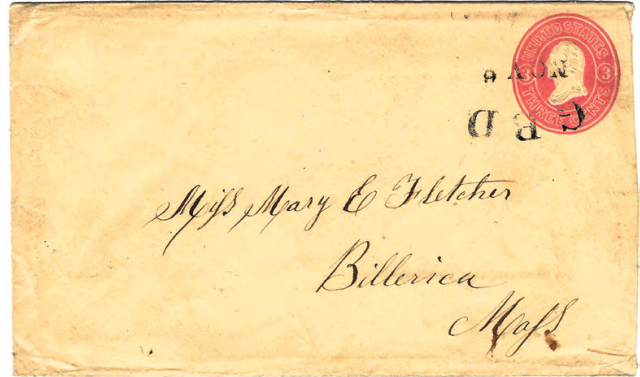 UNITED STATES
3 3
THREE CENTS
NOV
Miſs Mary E Fletcher
Billerica
Maſs